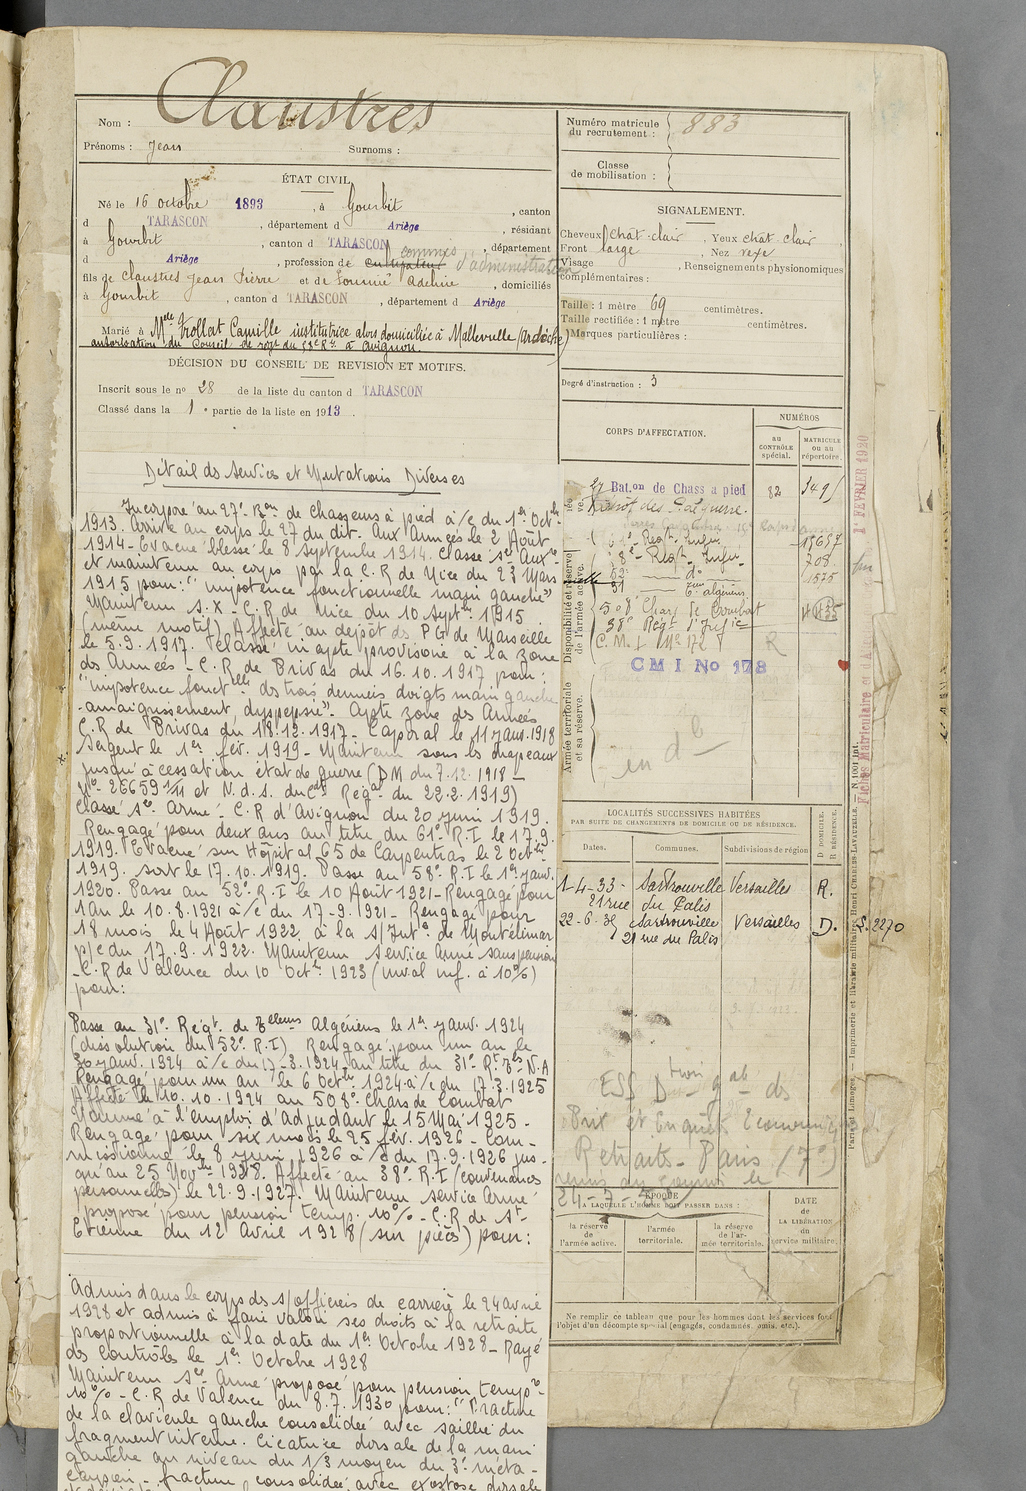 Nom : Claustres
Prénoms : Jean Surnoms :
ÉTAT CIVIL.
Né le 16 octobre 1893, à Gourbit, canton
d TARASCON, département d Ariège, résidant
à Gourbit, canton d TARASCON, département
d Ariège, profession de cultivateur commis d'administration
fils de Claustres Jean Pierre et de Adeline, domiciliés
à Gourbit, canton d TARASCON, département d Ariège
Marié à Mlle Camille institutrice alors domiciliée à (Ardèche)
autorisation du Conseil de Régt du 58e R.I. à Avignon.
DÉCISION DU CONSEIL DE REVISION ET MOTIFS.
Inscrit sous le no 28 de la liste du canton d TARASCON
Classé dans la 1e partie de la liste en 1913.
Détail des Services et Mutations Diverses
Incorporé au 27e Bon de chasseurs à pied à/c du 1er Octbre
1913. Arrivé au corps le 27 du dit. Aux Armées le 2 Août
1914 - Evacué blessé le 8 septembre 1914. Classé sce Auxre
et maintenu au corps par la C.R de Nice du 23 Mars
1915 pour: "impotence fonctionnelle main gauche"
Maintenu s.X - C.R de Nice du 10 septre 1915
(même motif) Affecté au dépôt ds P.G de Marseille
le 5.9.1917. Classé inapte provisoire à la zone
ds Armées - C.R de Privas du 16.10.1917 pour:
"impotence fonctelle ds trois derniers doigts main gauche
- amaigrissement, dyspepsie". Apte zone des Armées
C.R de Privas du 18.12.1917 - Caporal le 11 janv. 1918
Sergent le 1er fév. 1919 - Maintenu sous les drapeaux
jusqu'à cessation état de guerre (DM du 7.12.1918 -
No 26659 1/11 et N.d.s. du Cdt Régal du 22.2.1919)
Classé sce Armé - C.R d'Avignon du 20 juin 1919.
Rengagé pour deux ans au titre du 61e R.I le 17.9.
1919. Evacué sur Hôpital 65 de Carpentras le 2 Octbre
1919. sort le 17.10.1919. Passé au 58e R.I le 1er janv.
1920. Passe au 52e R.I le 10 Août 1921 - Rengagé pour
1 an le 10.8.1921 à/c du 17-9.1921 - Rengagé pour
18 mois le 4 Août 1922 à la s/Intce de Montélimar
p/c du 17.9.1922. Maintenu service Armé sans pension
- C.R de Valence du 10 Octre 1923 (inval inf. à 10%)
pour:
Passe au 31e Régt de Tirailleurs Algériens le 1er janv. 1924
(dissolution du 52e R.I) Rengagé pour un an le
30 janv. 1924 à/c du 17-3.1924 au titre du 31e Rt Trs N.A
Rengagé pour un an le 6 Octbre 1924 à/c du 17.3.1925
Affecté le 10.10.1924 au 508e Chars de Combat
Nommé à l'emploi d'Adjudant le 15 Mai 1925 -
Rengagé pour six mois le 25 fév. 1926 - Com-
missionné le 8 juin 1926 à/c du 17.9.1926 jus-
qu'au 25 Novbre 1928. Affecté au 38e R.I (convenances
personnelles) le 22.9.1927. Maintenu service Armé
proposé pour pension temp. 10% - C.R de St-
Etienne du 12 Avril 1928 (sur pièces) pour:
Admis dans le corps ds s/officiers de carrière le 24 avril
1928 et admis à faire valoir ses droits à la retraite
proportionnelle à la date du 1er Octobre 1928 - Rayé
ds contrôles le 1er Octobre 1928
Maintenu sce Armé proposé pour pension tempre
10% - C.R de Valence du 8.7.1930 pour: "Fracture
de la clavicule gauche consolidée avec saillie du
fragment interne. Cicatrice dorsale de la main
gauche au niveau du 1/3 moyen du 3e méta-
carpien - fracture consolidée avec exostose dorsale
Numéro matricule du recrutement : 883
Classe de mobilisation :
SIGNALEMENT.
Cheveux chât-clair, Yeux chat. clair,
Front large, Nez vexe
Visage, Renseignements physionomiques
complémentaires :
Taille : 1 mètre 69 centimètres.
Taille rectifiée : 1 mètre centimètres.
Marques particulières :
Degré d'instruction : 3
CORPS D'AFFECTATION.
NUMÉROS
au CONTRÔLE spécial.
MATRICULE ou au répertoire.
27 Bat.on de Chass à pied 82 5491
Dépôt des P. de guerre.
61e Régt Infie 15657
58e Régt Infie 703
52e - do - 1575
31e - Tirs algériens
508e Chars de Combat
38e Régt d'Infie
CMI No 178
Disponibilité et réserve de l'armée active.
Armée territoriale et sa réserve.
LOCALITÉS SUCCESSIVES HABITÉES
PAR SUITE DE CHANGEMENTS DE DOMICILE OU DE RÉSIDENCE.
Dates. Communes. Subdivisions de région
D DOMICILE. R RÉSIDENCE.
1-4-33 - Sartrouville Versailles R.
21 rue du Palis
22-6-35 Sartrouville Versailles D. S. 2270
21 rue du Palis
ESS Dtion gale ds
Prix et Enquêtes Economiques
Retraits - Paris (7e)
24-7-
ÉPOQUE
À LAQUELLE L'HOMME DOIT PASSER DANS :
la réserve de l'armée active.
l'armée territoriale.
la réserve de l'armée territoriale.
DATE de LA LIBÉRATION du service militaire.
Ne remplir ce tableau que pour les hommes dont les services font
l'objet d'un décompte spécial (engagés, condamnés, omis, etc.).
1er FÉVRIER 1920
Paris et Limoges. — Imprimerie et librairie militaires Henri CHARLES-LAVAUZELLE.